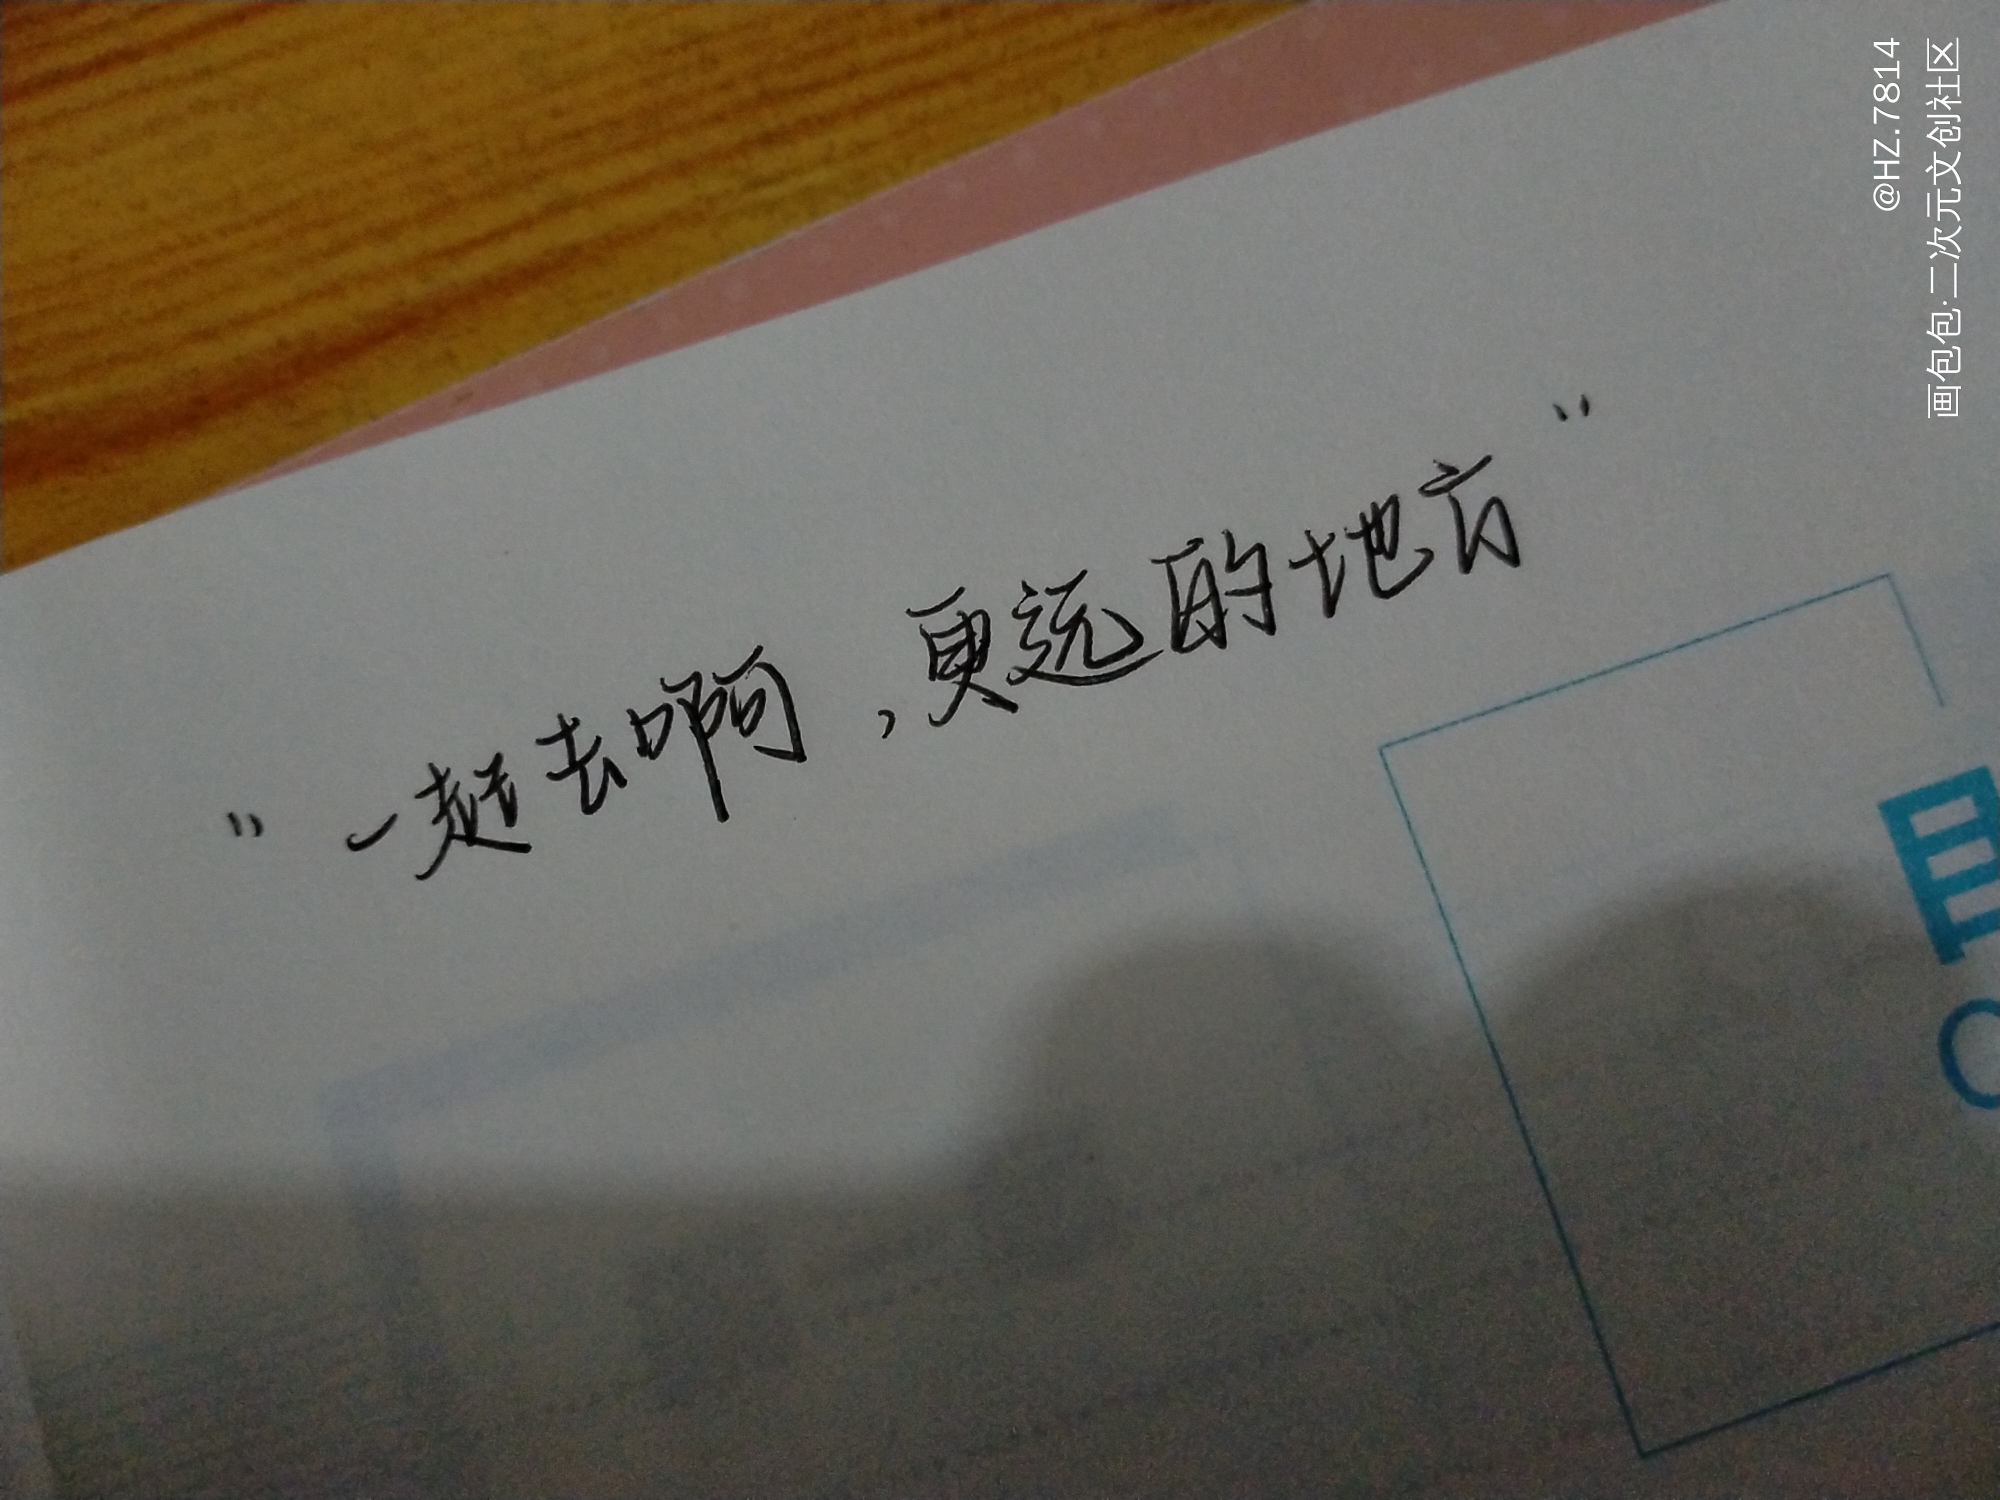 "一起去啊，更远的地方"
@HZ.7814
画包包·二次元文创社区